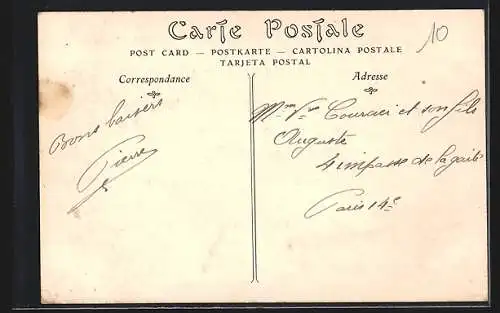 Carte Postale
10
POST CARD — POSTKARTE — CARTOLINA POSTALE
TARJETA POSTAL
Correspondance
Bons baisers
Pierre
Adresse
Mme Vve et son fils
Auguste
4 impasse de la gaité
Paris 14e